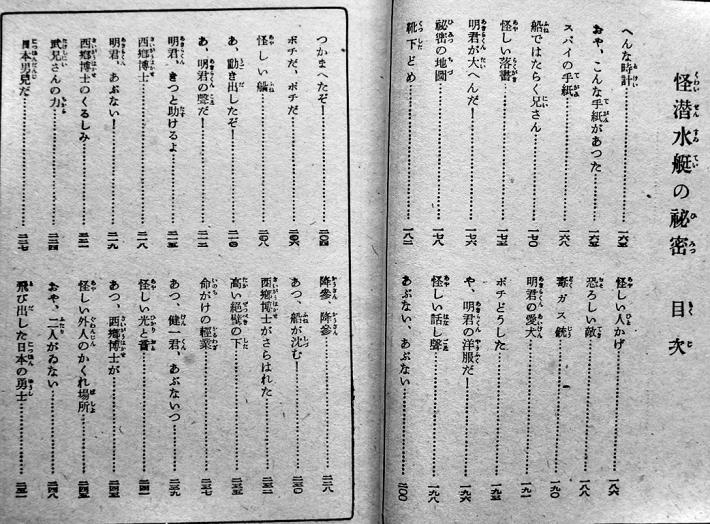 怪潜水艇の祕密 目次
へんな時計 一六三
おや、こんな手紙があつた 一六五
スパイの手紙 一六八
船ではたらく兄さん 一七〇
怪しい落書 一七三
明君が大へんだ! 一七六
祕密の地圖 一七八
靴下どめ 一八二
怪しい人かげ 一八六
恐ろしい敵 一八八
毒ガス銃 一九〇
明君の愛犬 一九一
ポチどうした 一九三
や、明君の洋服だ! 一九六
怪しい話し聲 一九八
あぶない、あぶない 二〇〇
つかまへたぞ! 二〇四
ポチだ、ポチだ 二〇六
怪しい艦 二〇八
あ、動き出したぞ! 二一〇
あ、明君の聲だ! 二一三
明君、きつと助けるよ 二一五
西郷博士 二一八
明君、あぶない! 二一九
西郷博士のくるしみ 二二一
武兄さんの力 二二四
日本男兒だ 二二七
降參、降參 二二八
あつ、船が沈む! 二三〇
西郷博士がさらはれた 二三二
高い絶壁の下 二三五
命がけの輕業 二三七
あつ、健一君、あぶないつ 二三九
怪しい光と音 二四一
あつ、西郷博士が 二四三
怪しい外人のかくれ場所 二四五
おや、二人がゐない 二四八
飛び出した日本の勇士 二五一